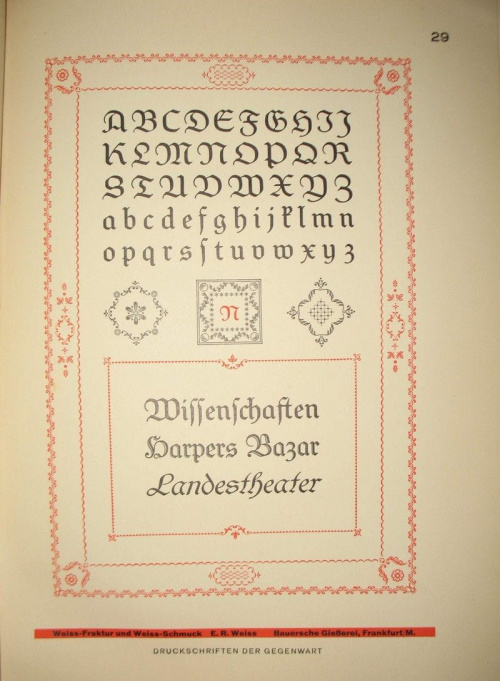 29
A B C D E F G H I J
K L M N O P Q R
S T U V W X Y Z
a b c d e f g h i j k l m n
o p q r s ſ t u v w x y z
N
Wiſſenſchaften
Harpers Bazar
Landestheater
Weiss-Fraktur und Weiss-Schmuck E. R. Weiss Bauersche Gießerei, Frankfurt/M.
DRUCKSCHRIFTEN DER GEGENWART